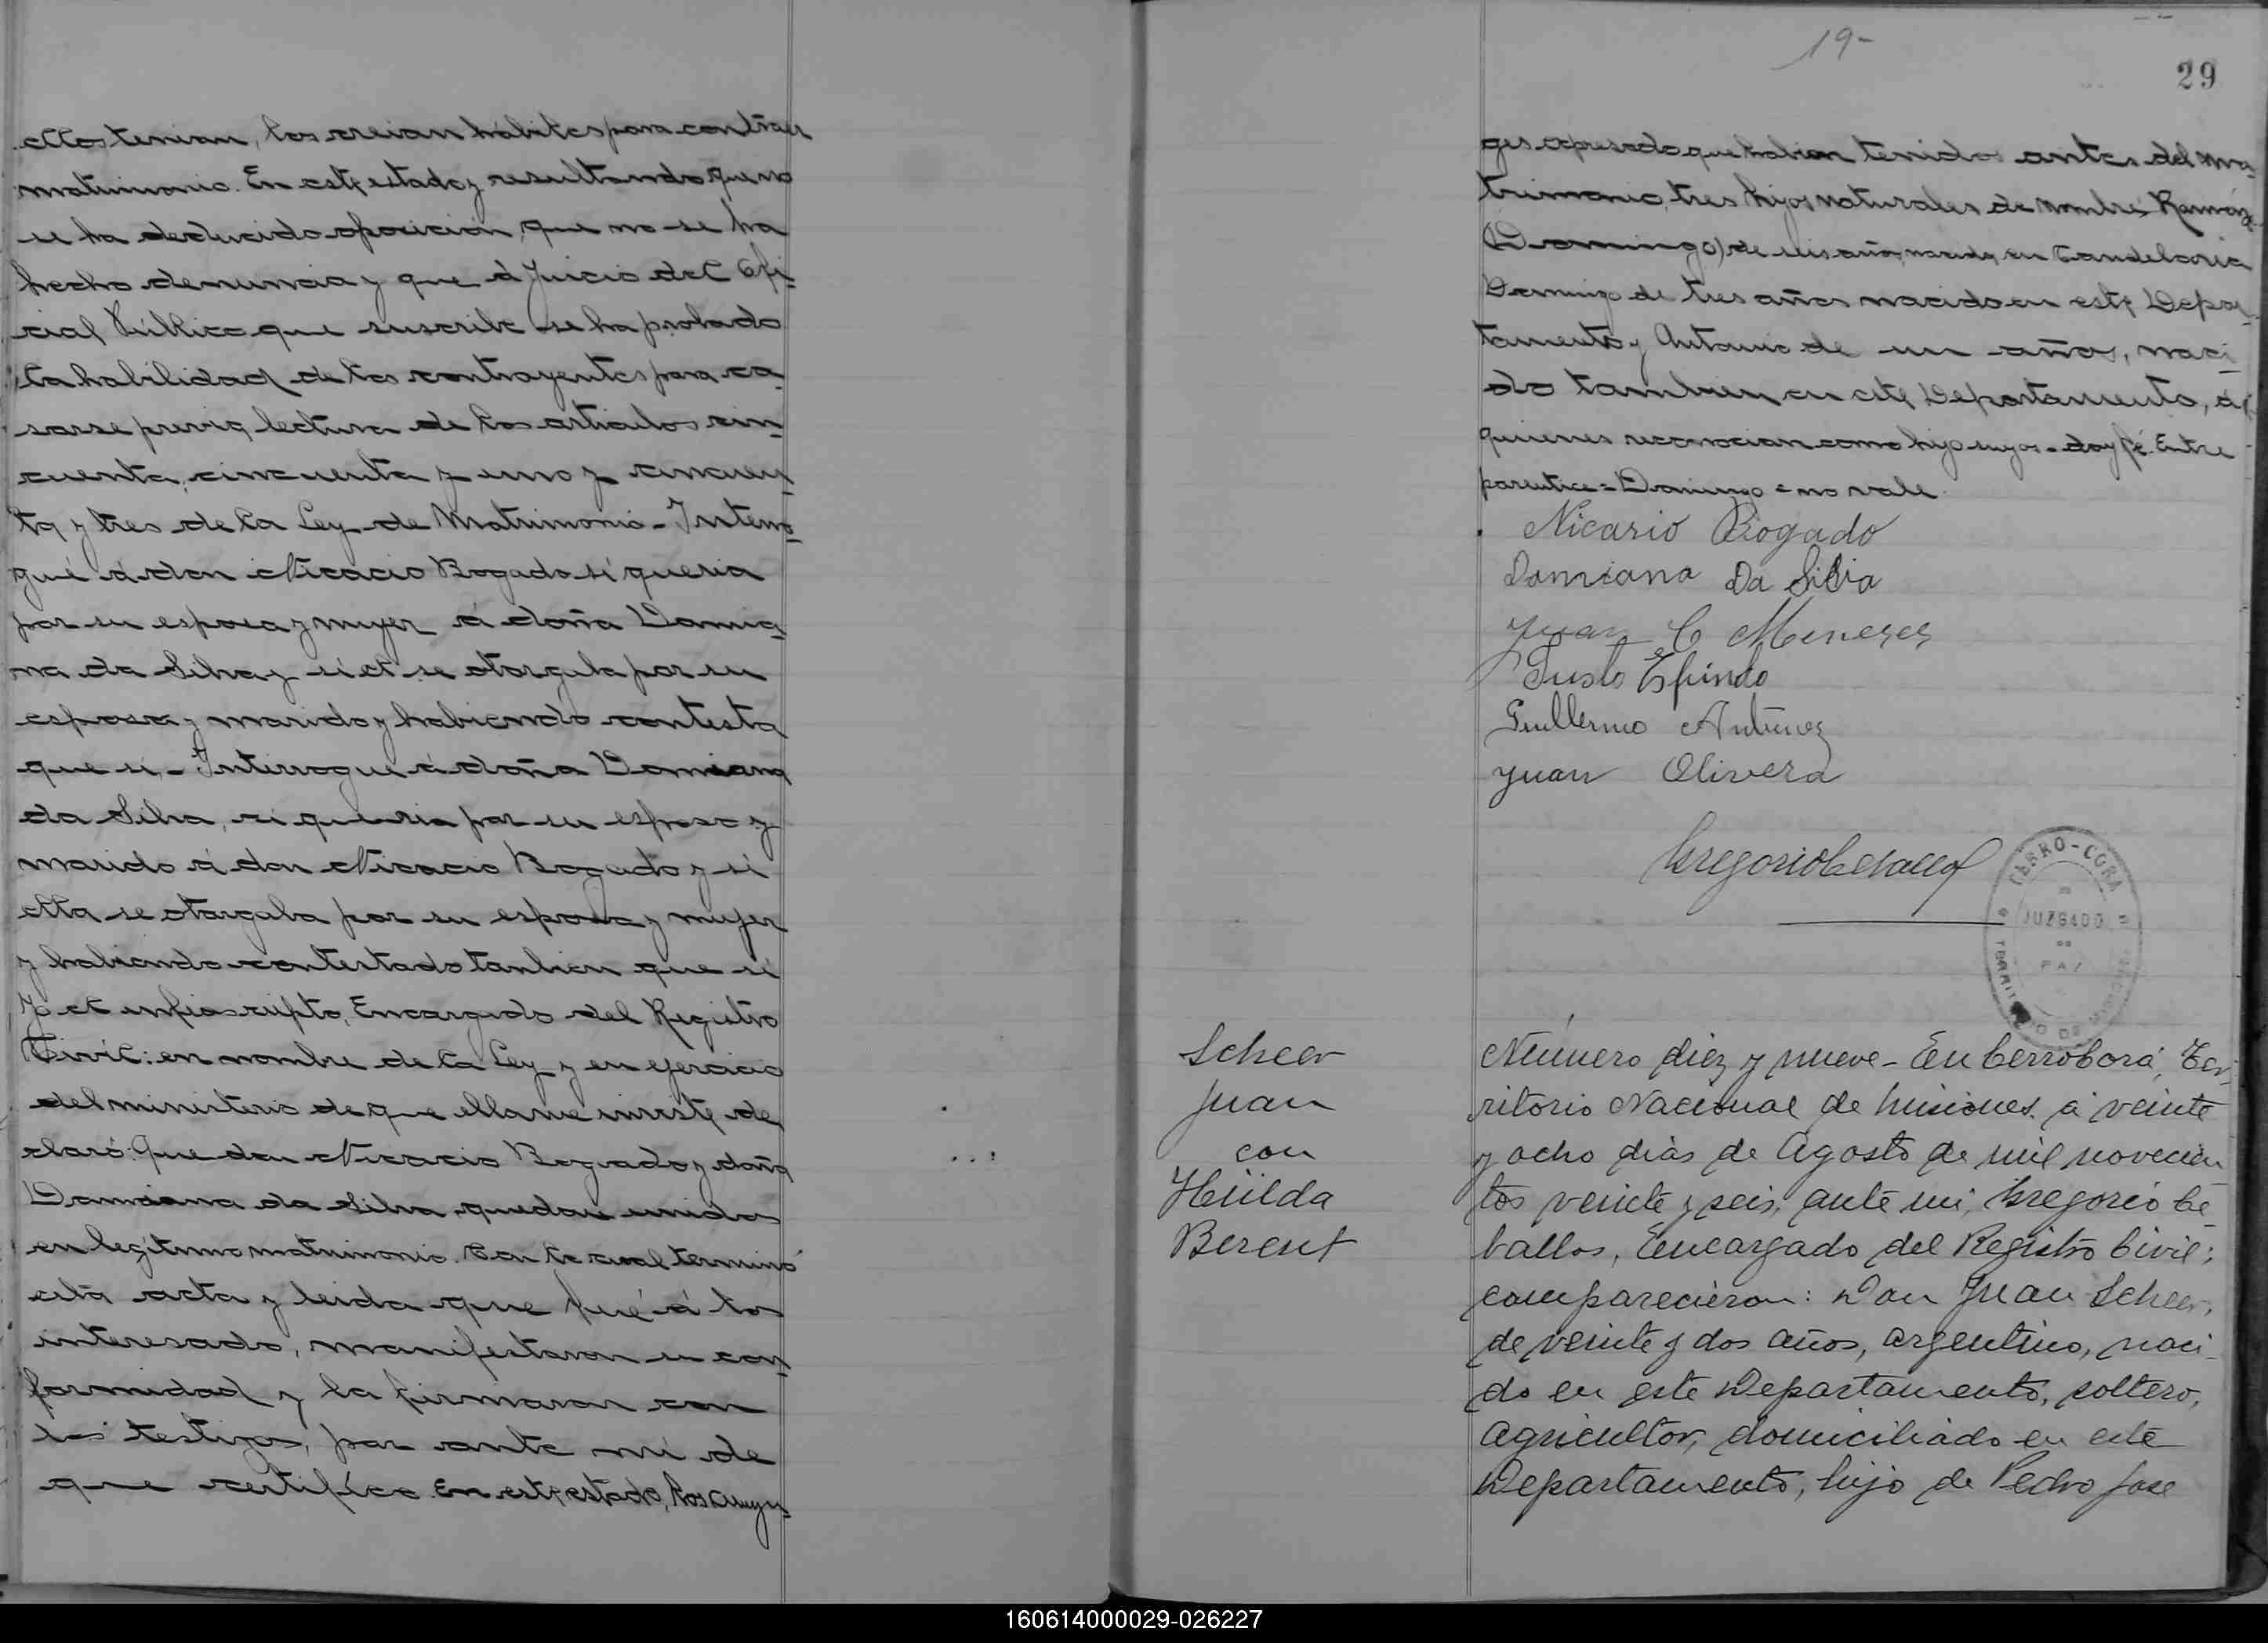 ellos tenian, los creian hábiles para contraer
matrimonio. En este estado y resultando que no
se ha deducido oposición, que no se ha
hecho denuncia y que á juicio del Ofi-
cial Público que suscribe se ha probado
la habilidad de los contrayentes para ca-
sarse previa lectura de los articulos cin-
cuenta, cincuenta y uno y cincuen-
ta y tres de la Ley de Matrimonio - Interro-
gué á don Nicacio Bogado si queria
por su esposa y mujer á doña Damia-
na da Silva y si el se otorgaba por su
esposo y marido y habiendo contesta
que si.- Interrogue á doña Damiana
da Silva, si queria por su esposo y
marido á don Nicacio Bogado y si
ella se otorgaba por su esposa y mujer
y habiendo contestado tanbien que si
Yo el infrascripto, Encargado del Registro
Civil: en nombre de la Ley y en ejercicio
del ministerio de que ella me inviste de
claró: Que don Nicacio Bogado y doña
Damiana da Silva, quedan unidos
en legítimo matrimonio. Con lo cual terminó
esta acta y leida que fué á los
interesado, manifestaron su con-
formidad y la firmaron con
los testigos, por ante mi de
que certifico. En este estado, los conyu-
19-
29
ges expresado que habian tenidos antes del ma-
trimonio, tres hijos naturales de nombre Ramón
(Domingo) de seis años, nacido en Candelaria
Domingo de tres años nacido en este Depar-
tamento y Antonio de un años, naci-
do tambien en este Departamento, á
quienes reconocian como hijo suyos - doy fé. Entre
parentice = Domingo = no vale.
Nicasio Bogado
Damiana Da Silvia
Juan C Meneses
Justo Espindo
Guillermo Antunez
Juan Olivera
Gregorio Ceballos
CERRO-CORA
JUZGADO
DE
PAZ
TERRITORIO DE MISIONES
Scheer
Juan
con
Hüilda
Berent
Número diez y nueve - En Cerro Corá, Ter-
ritorio Nacional de Misiones á veinte
y ocho dias de Agosto de mil novecien
tos veinte y seis, ante mi, Gregorio Ce-
ballos, Encargado del Registro Civil;
comparecieron: Don Juan Scheer,
de veinte y dos años, argentino, naci-
do en este Departamento, soltero,
agricultor, domiciliado en este
Departamento, hijo de Pedro Jose
160614000029-026227